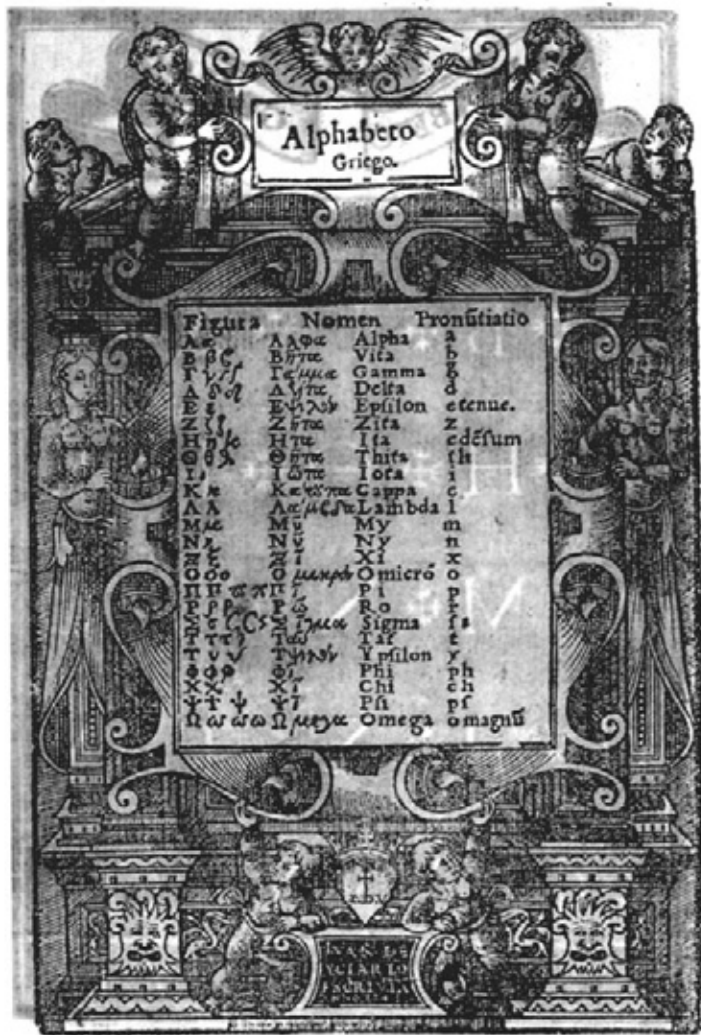 Alphabeto
Griego.
Figura Nomen Pronũtiatio
Α α Αλφα Alpha a
Β β ϐ Βῆτα Vita b
Γ γ Γάμμα Gamma g
Δ δ Δέλτα Delta d
Ε ε Εψιλόν Epsilon e tenue.
Ζ ζ Ζῆτα Zita z
Η η Ητα Ita e dēsum
Θ θ ϑ Θῆτα Thita th
Ι ι Ιῶτα Iota i
Κ κ Κάππα Cappa c
Λ λ Λάμβδα Lambda l
Μ μ Μῦ My m
Ν ν Νῦ Ny n
Ξ ξ Ξῖ Xi x
Ο ο ο Ομικρόν Omicrõ o
Π π ϖ π Πῖ Pi p
Ρ ρ ρ Ρῶ Ro r
Σ σ ς C ς Σίγμα Sigma ſs
Τ τ Ταῦ Taf t
Υ υ Υψιλόν Ypſilon y
Φ φ φ Φῖ Phi ph
Χ χ Χῖ Chi ch
Ψ ψ Ψῖ Pſi pſ
Ω ω ω ω Ωμεγα Omega o magnũ
IVAN DE
YCIAR LO
ESCRIVIA